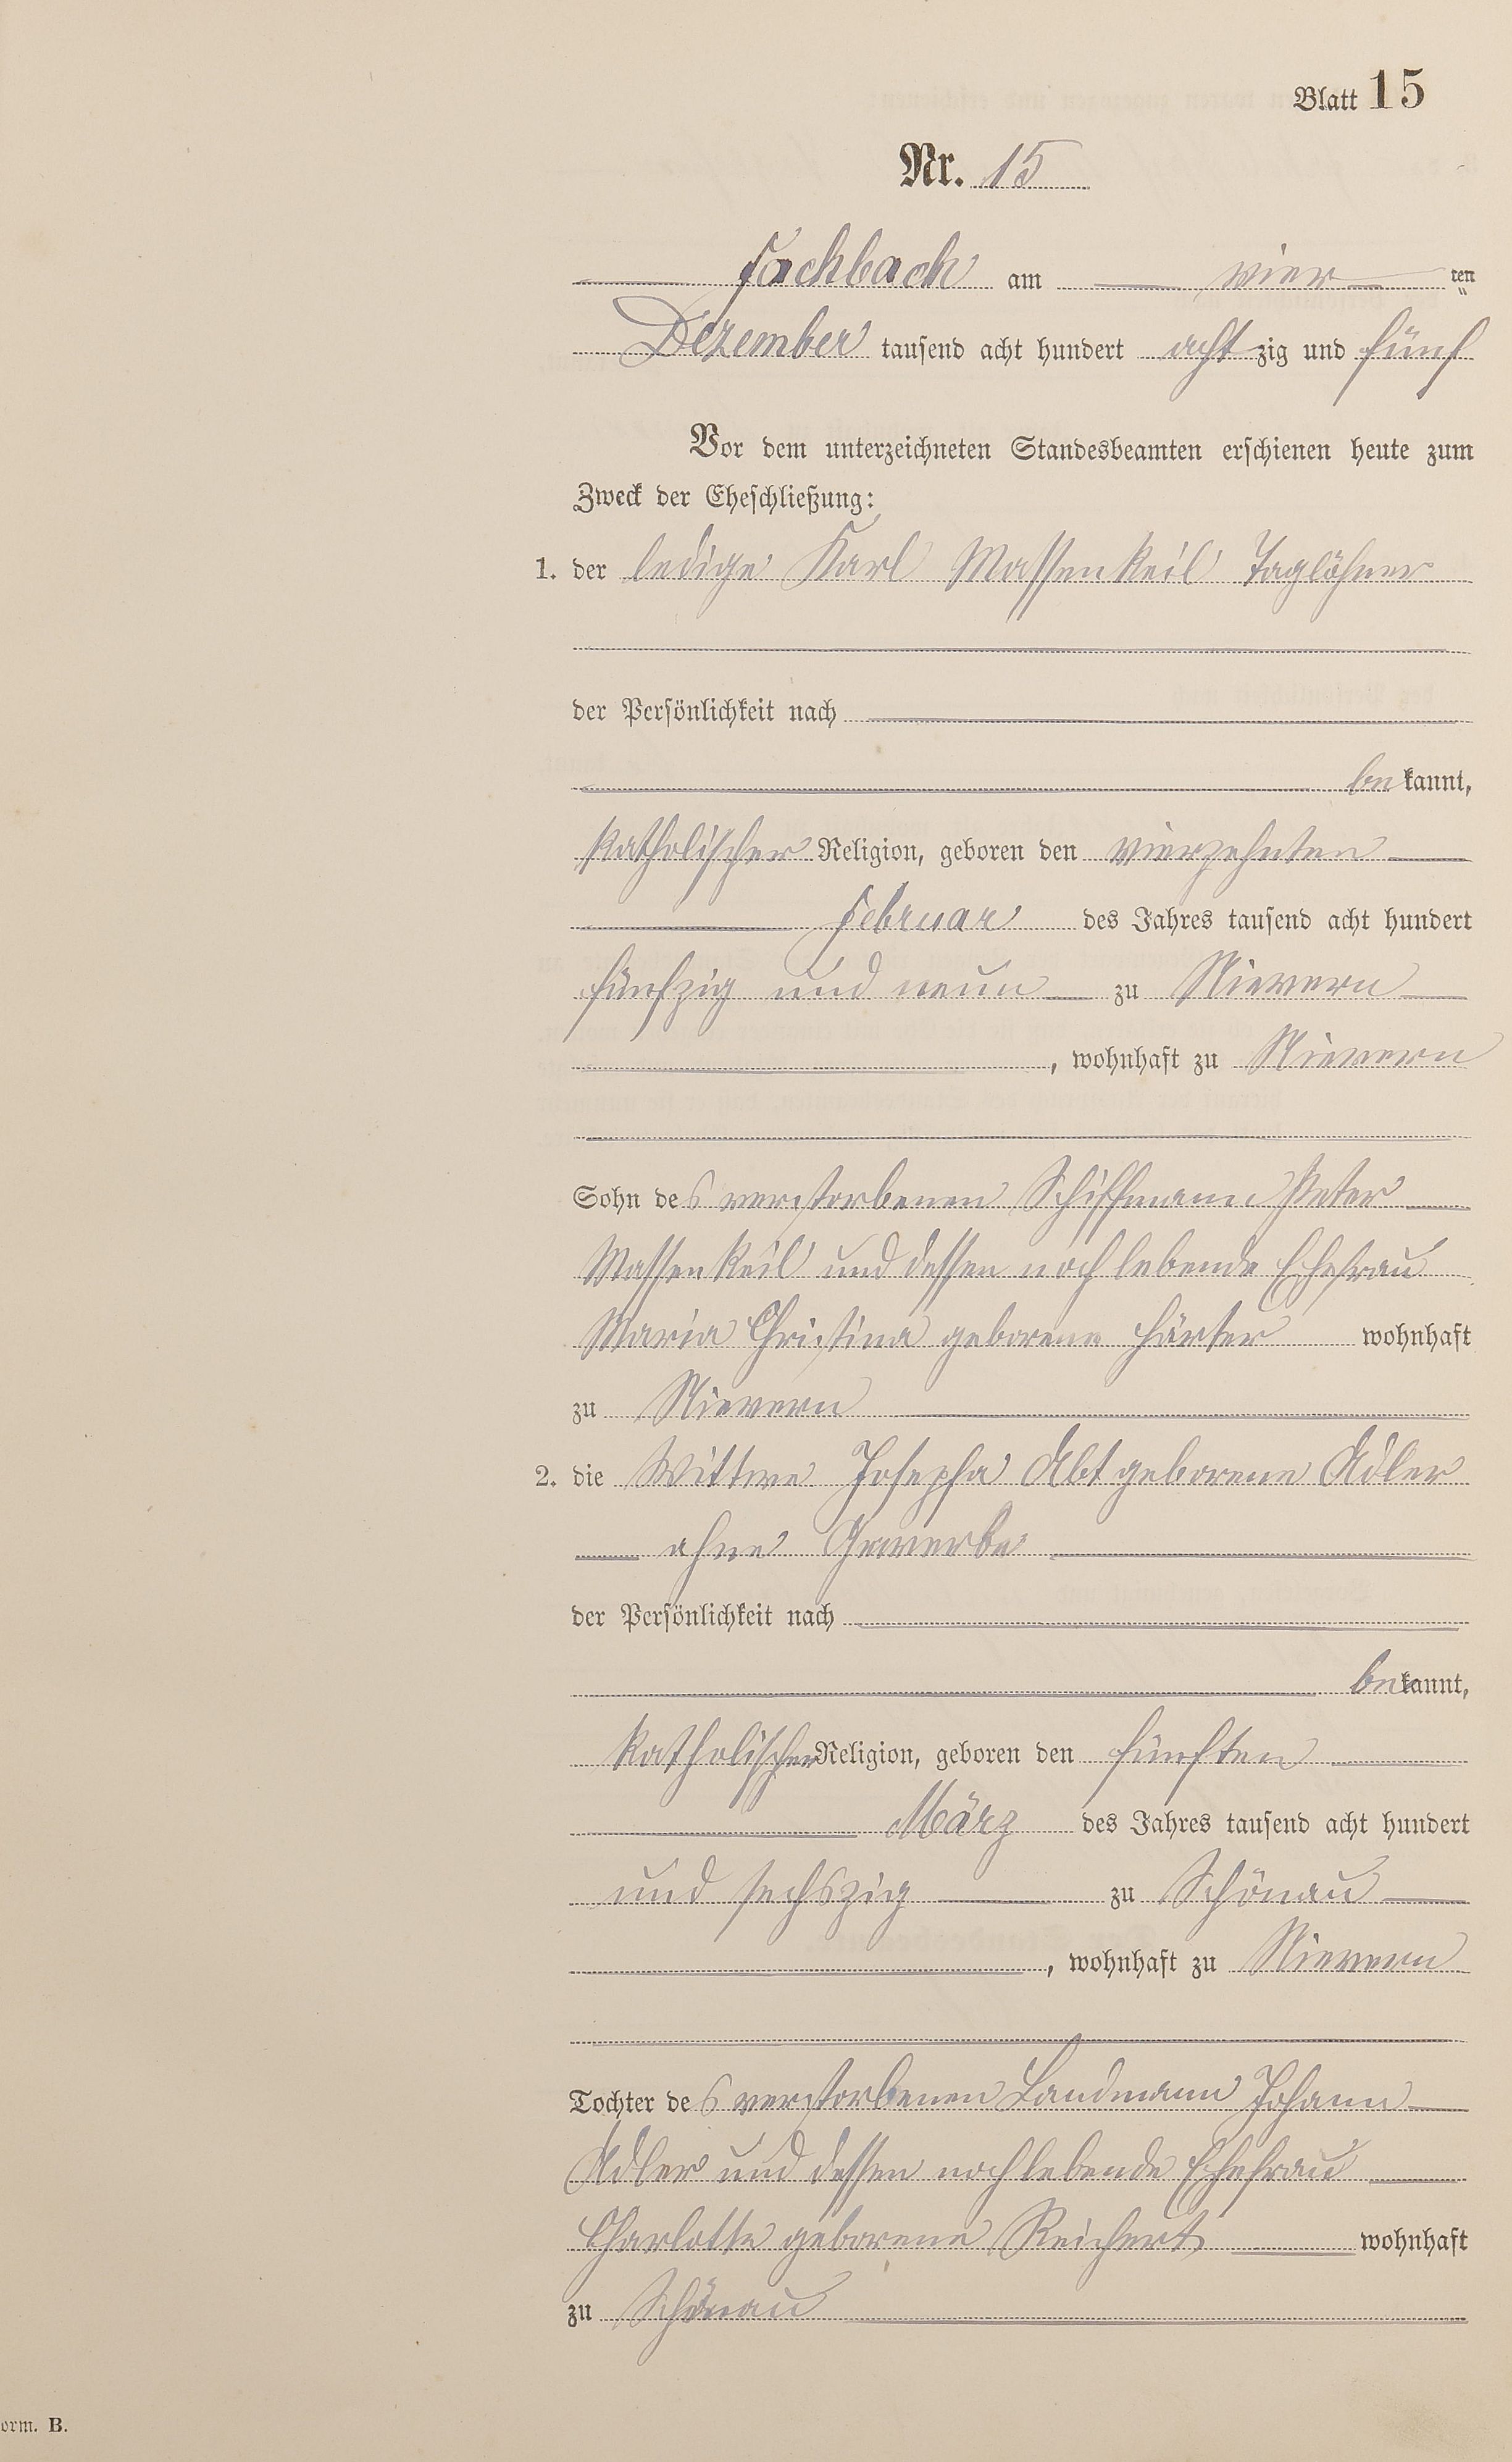 Blatt 15
Nr. 15
Fachbach am vier ten
Dezember tausend acht hundert acht zig und fünf
Vor dem unterzeichneten Standesbeamten erschienen heute zum
Zweck der Eheschließung:
1. der ledige Karl Massenkeil Taglöhner
der Persönlichkeit nach
be kannt,
katholischer Religion, geboren den vierzehnten
Februar des Jahres tausend acht hundert
fünfzig und neun zu Nievern
, wohnhaft zu Nievern
Sohn des verstorbenen Schiffmann Peter
Massenkeil und dessen noch lebende Ehefrau
Maria Christina geborene Härter wohnhaft
zu Nievern
2. die Wittwe Josepha Abt geborene Adler
ohne Gewerbe
der Persönlichkeit nach
be kannt,
katholischer Religion, geboren den fünften
März des Jahres tausend acht hundert
und sechszig zu Schönau
, wohnhaft zu Nievern
Tochter des verstorbenen Landmann Johann
Adler und dessen noch lebende Ehefrau
Charlotte geborene Reichert wohnhaft
zu Schönau
orm. B.